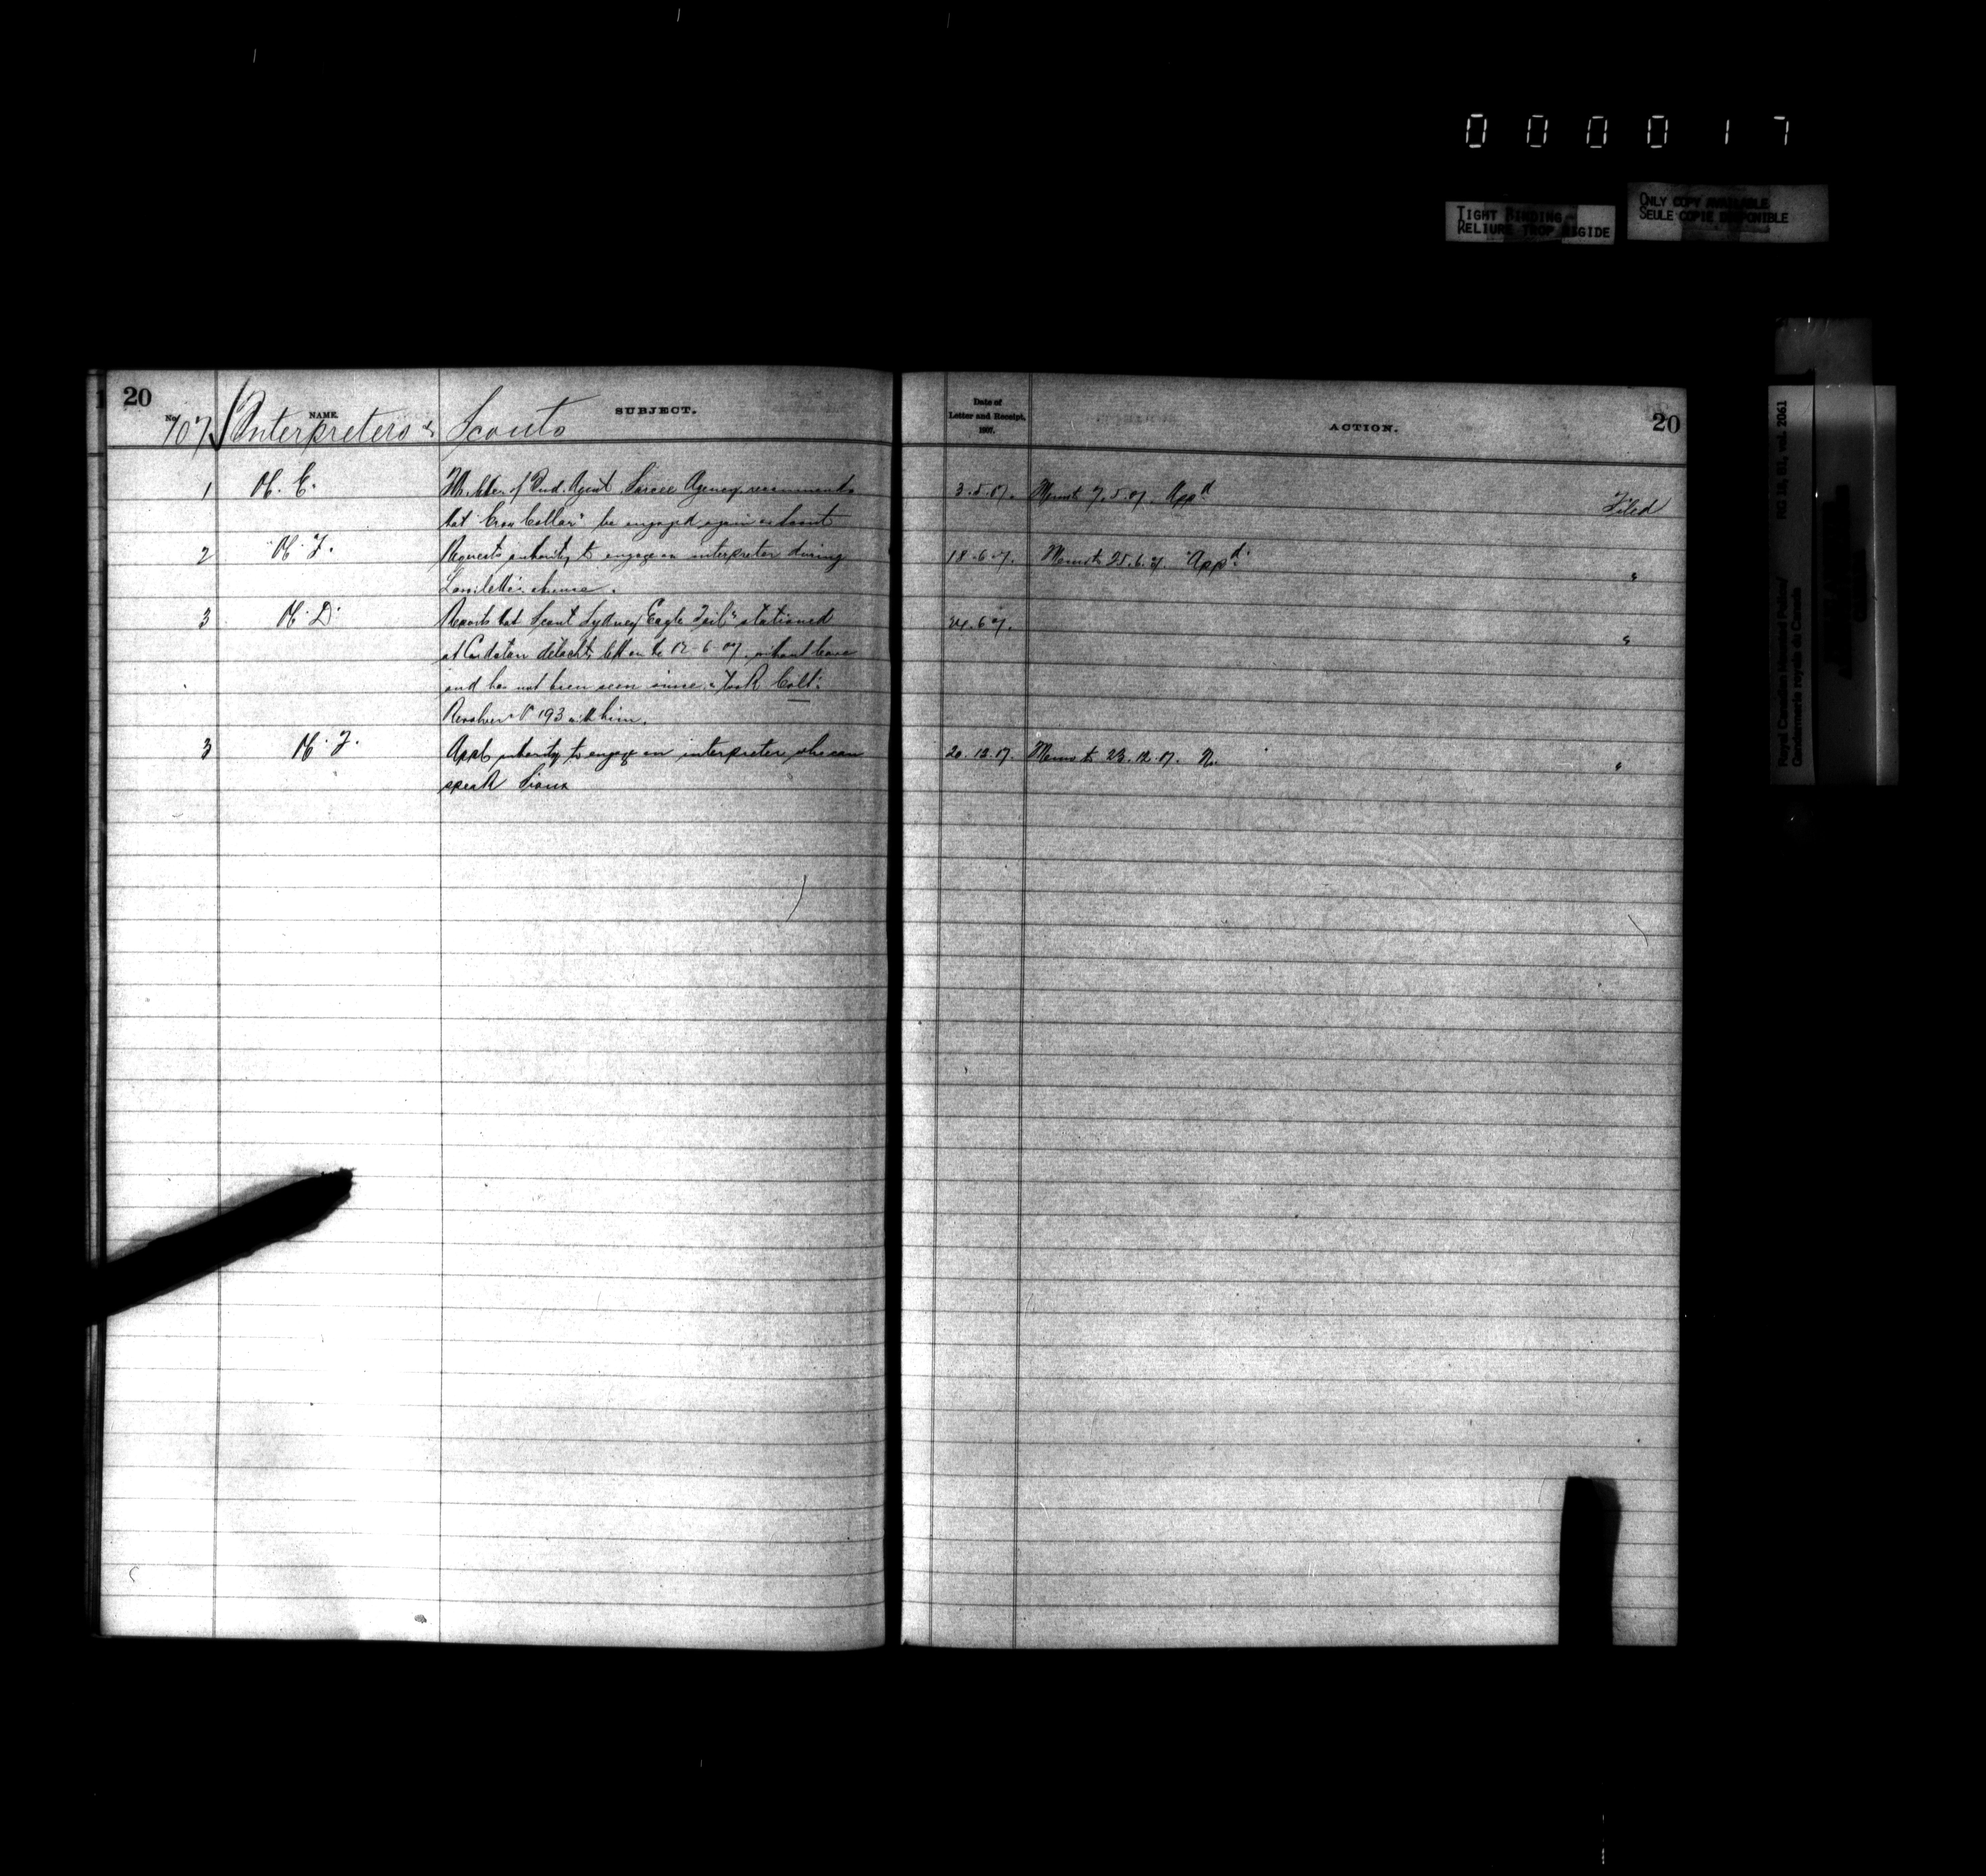 000017
TIGHT BINDING
RELIURE TROP RIGIDE
ONLY COPY AVAILABLE
SEULE COPIE DISPONIBLE
Royal Canadian Mounted Police/
Gendarmerie royale du Canada
RG 18, B1, vol. 2061
20
No. NAME. SUBJECT.
107 Interpreters & Scouts
Date of
Letter and Receipt,
1907.
ACTION.
20
1 of Ind. Agent Sarcee Agency recommends 3.5.07. 7.5.07. Appd Filed
that "Crow Collar" be engaged again as Scout
2 Requests authority to engage an interpreter during 18.6.07. 25.6.07. Appd "
absence.
3 "D" Reports that Scout Sydney "Eagle Tail" stationed 24.6.07. "
at Cardston detacht. left on the 12-6-07 without leave
and has not been seen since. Took Colt's
Revolver 193 with him.
3 authority to engage an interpreter who can 20.12.07. 23.12.07. No. "
speak Sioux